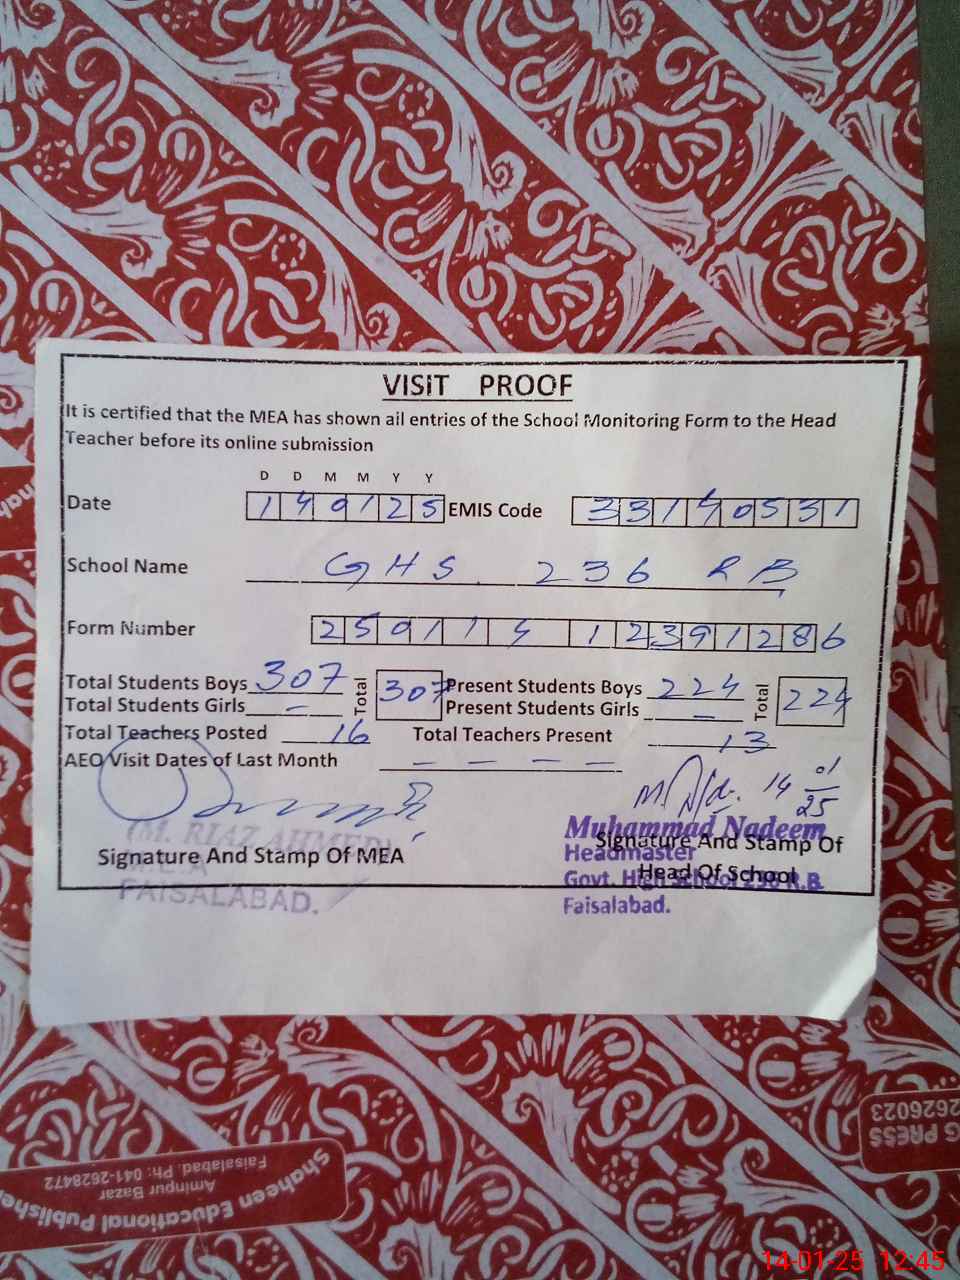 VISIT PROOF
It is certified that the MEA has shown all entries of the School Monitoring Form to the Head
Teacher before its online submission
D D M M Y Y
Date 140125 EMIS Code 33140531
School Name GHS 236 RB
Form Number 25011412391286
Total Students Boys 307 Total 307 Present Students Boys 224 Total 224
Total Students Girls – Present Students Girls –
Total Teachers Posted 16 Total Teachers Present 13
AEO Visit Dates of Last Month – – – –
14 01/25
(M. RIAZ AHMED)
Signature And Stamp Of MEA
M.E.A
FAISALABAD.
Muhammad Nadeem
Signature And Stamp Of
Headmaster
Head Of School
Govt. High School 236 R.B
Faisalabad.
2626023
G PRESS
Shaheen Educational Publishe
Aminpur Bazar
Faisalabad. Ph: 041-2628472
14-01-25 12:45